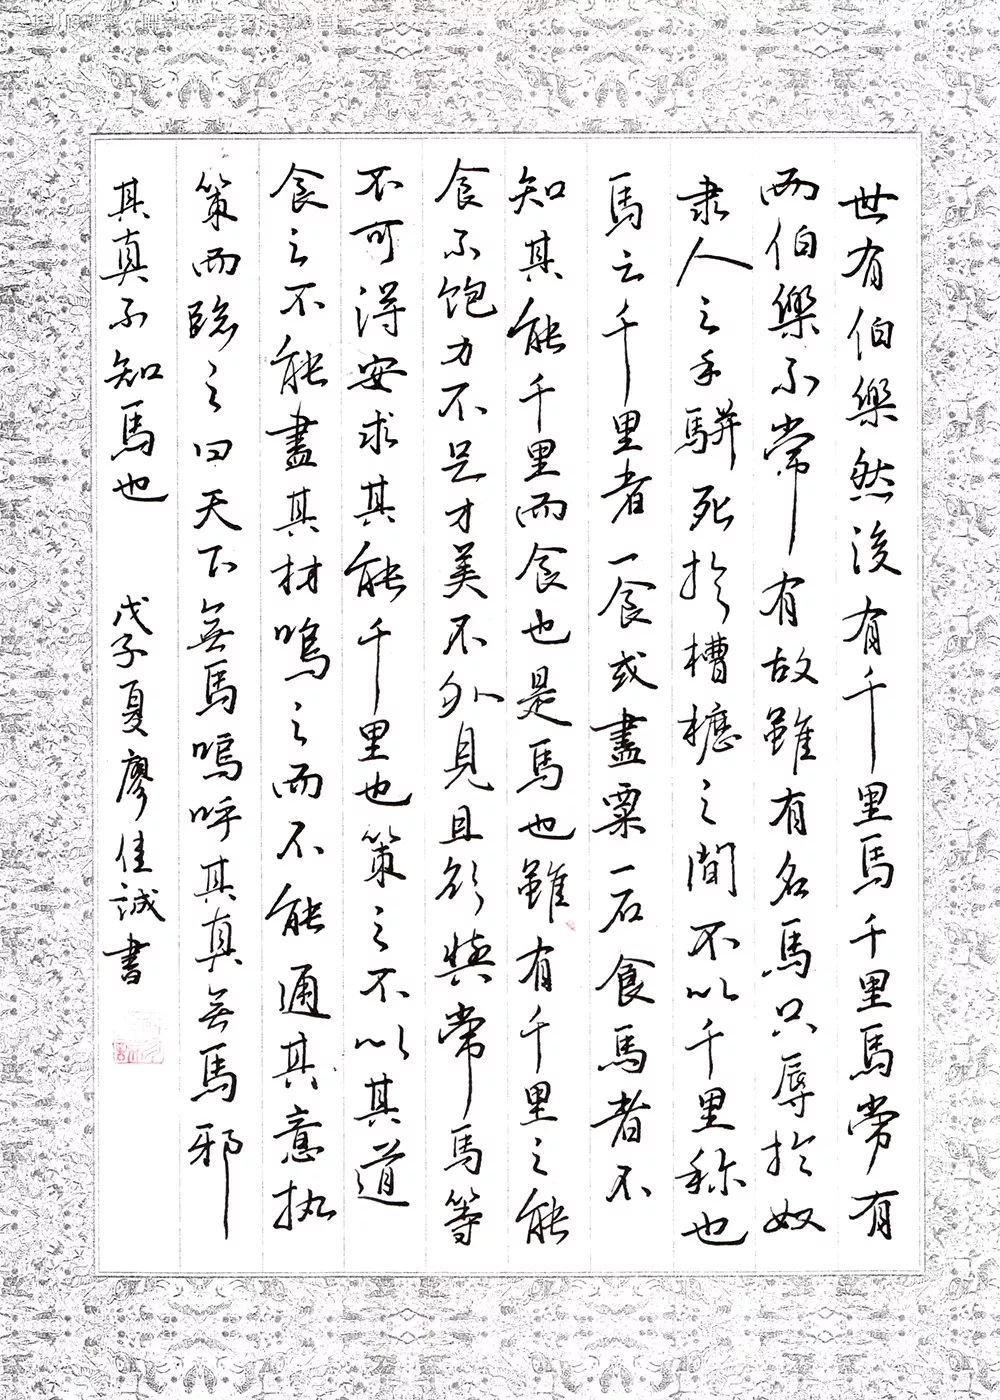 世有伯樂然後有千里馬千里馬常有
而伯樂不常有故雖有名馬只辱於奴
隶人之手駢死於槽櫪之間不以千里称也
馬之千里者一食或盡粟一石食馬者不
知其能千里而食也是馬也雖有千里之能
食不饱力不足才美不外見且欲與常馬等
不可得安求其能千里也策之不以其道
食之不能盡其材鳴之而不能通其意执
策而臨之曰天下無馬嗚呼其真無馬邪
其真不知馬也 戊子夏廖佳誠書